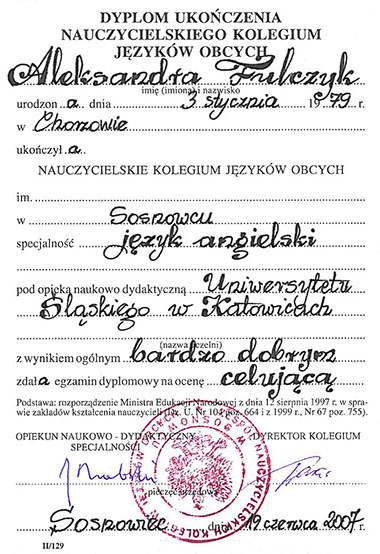 DYPLOM UKOŃCZENIA
NAUCZYCIELSKIEGO KOLEGIUM
JĘZYKÓW OBCYCH
Aleksandra Fulczyk
imię (imiona) i nazwisko
urodzona dnia 3 stycznia 1979 r.
w Chorzowie
ukończyła
NAUCZYCIELSKIE KOLEGIUM JĘZYKÓW OBCYCH
im.
w Sosnowcu
specjalność język angielski
pod opieką naukowo dydaktyczną Uniwersytetu
Śląskiego w Katowicach
(nazwa uczelni)
z wynikiem ogólnym bardzo dobrym
zdała egzamin dyplomowy na ocenę celującą
Podstawa: rozporządzenie Ministra Edukacji Narodowej z dnia 12 sierpnia 1997 r. w spra-
wie zakładów kształcenia nauczycieli (Dz. U. Nr 104 poz. 664 i z 1999 r., Nr 67 poz. 755).
OPIEKUN NAUKOWO - DYDAKTYCZNY DYREKTOR KOLEGIUM
SPECJALNOŚCI
pieczęć urzędowa
Sosnowiec dnia 19 czerwca 2007 r.
II/129